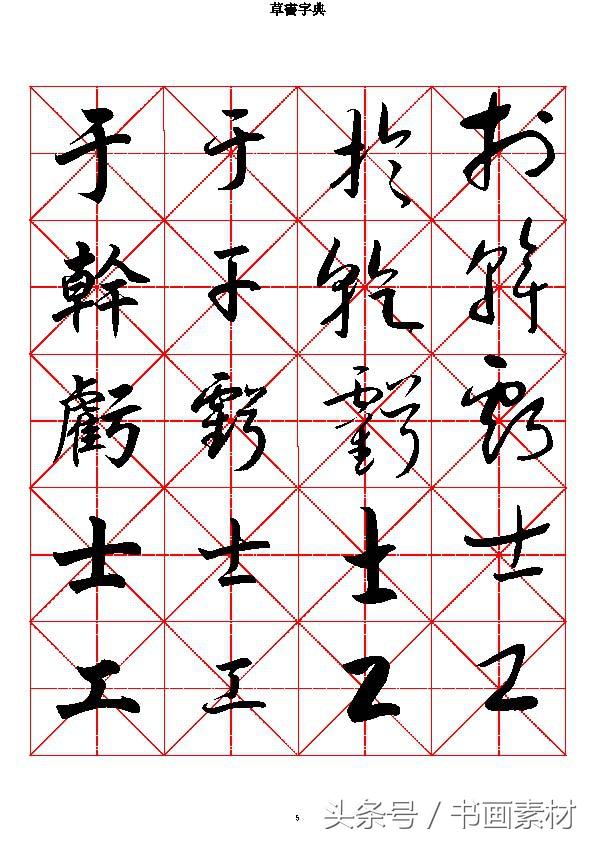 草書字典
于于於於
幹干乾幹
虧虧虧虧
士士士士
工工工工
5
头条号 / 书画素材